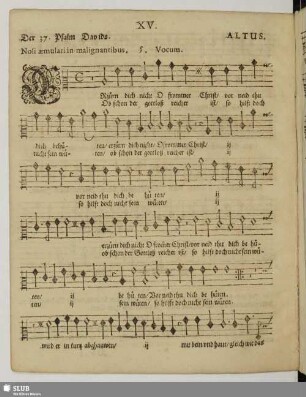 XV.
Der 37. Psalm Davids. ALTUS.
Noli æmulari in malignantibus. 5. Vocum.
ERzürn dich nicht O frommer Christ/ vor neid thu
Ob schon der gottloß reicher ist/ so hilft doch
dich behü- ten/ erzürn dich nicht/ O frommer Christ/ ij
nicht sein wü- ten/ ob schon der gottloß reicher ist/ ij
vor neid thu dich be hü ten/ ij
so hilft doch nicht sein wüten/ ij
erzürn dich nicht O frommer Christ/ vor neid thu dich be hü-
ob schon der Gottloß reicher ist/ so hilft doch nicht sein wü-
ten/ ij be hü ten/ Vor neid thu dich be hüten.
ten/ ij sein wüten/ so hilft doch nicht sein wüten.
wird er in kurtz abghawen/ ij mit dem und
gleich wie das
SLUB